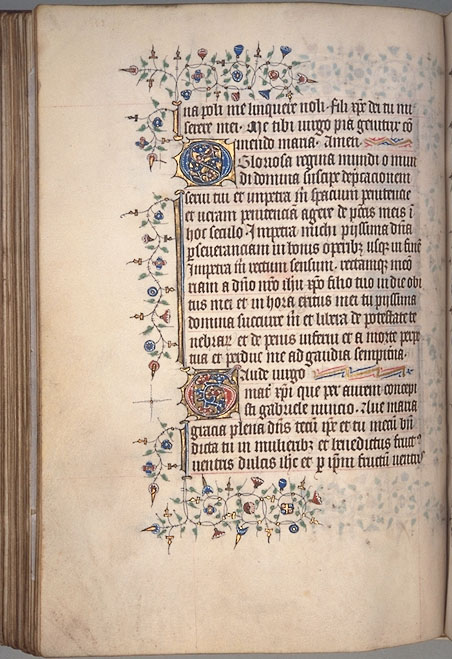 na poli me linquere noli. fili xpe dei tu mi
serere mei. Me tibi virgo pia genitrix cō
mendo maria. Amen.
O Gloriosa regina mundi o mun
di domina suscipe deprecationem
servi tui et impetra m̄ spacium penitencie
et veram penitencia agere de pctīs meis ī
hoc seculo Impetra michi pijssima dn̄a
pseveranciam in bonis operibz usqz in finē
Impetra m̄ rectum sensum. rectamqz
ciam a dn̄o nr̄o ihu xpo filio tuo in die obi
tus mei et in hora exitus mei tu pijssima
domina succurre m̄ et libera de potestate te
nebrar et de penis inferni et a morte perpe
tua et perduc me ad gaudia sempitna.
Aude virgo
mat xpi que per aurem concepi
sti gabriele nuncio. Aue maria
gracia plena dn̄s tecū et tu mecū bn̄
dicta tu in mulieribz et benedictus fruct
ventris dulcis ihc et p ipm̄ fructū ventris